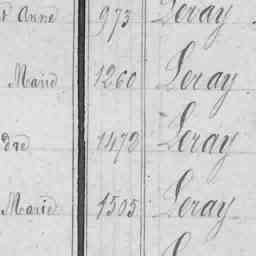 Anne 973 Leray
Marie 1260 Leray
dre 1472 Leray
Marie 1505 Leray